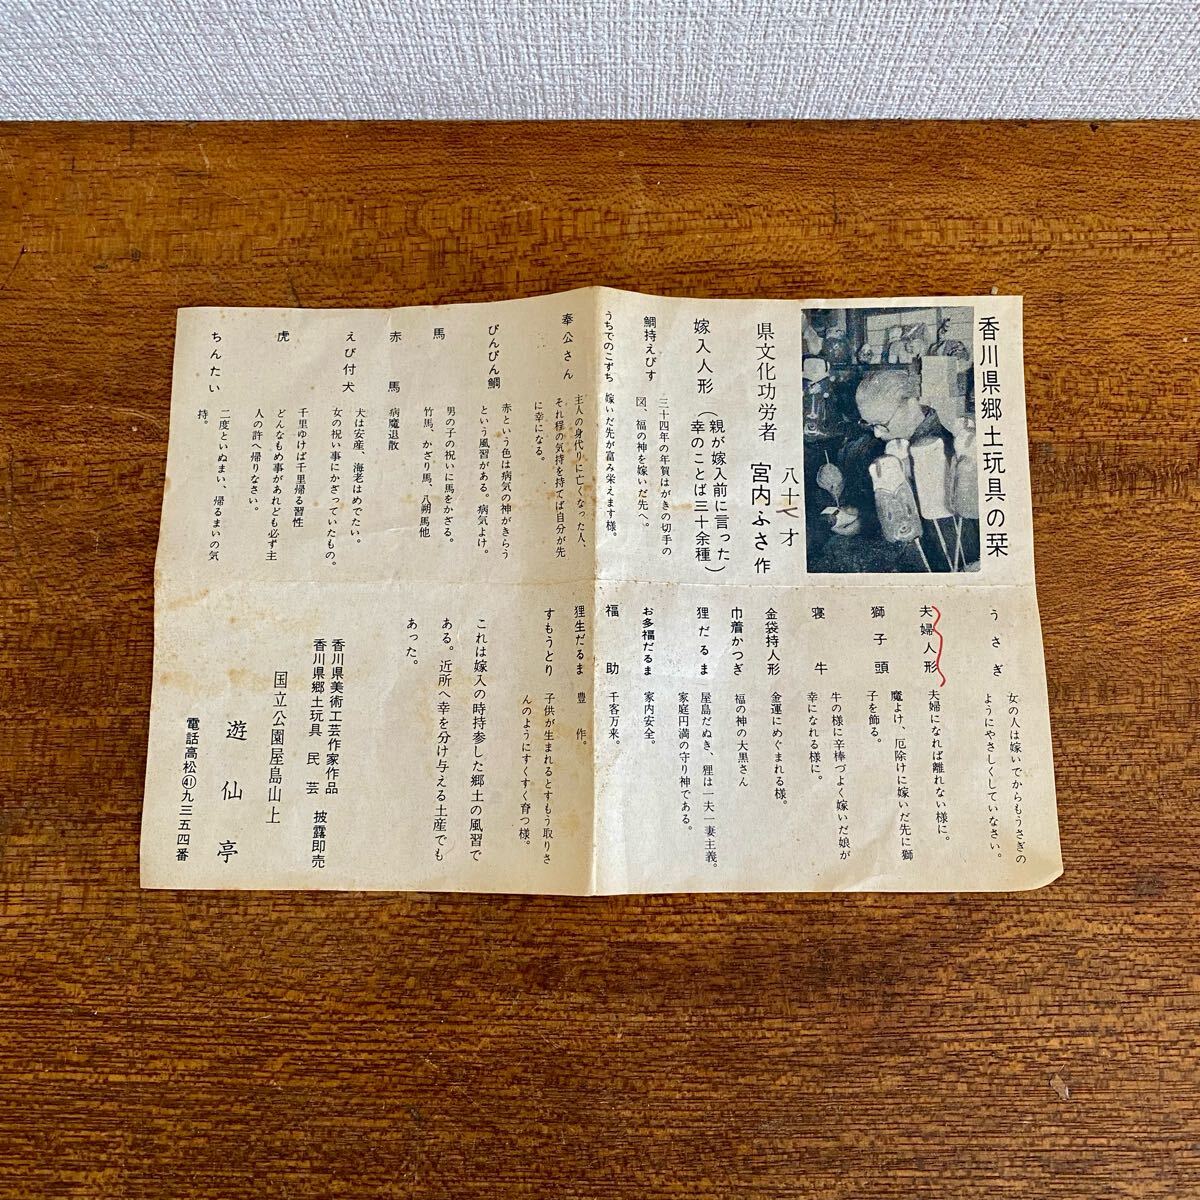 香川県郷土玩具の栞
県文化功労者
八十 才
宮内ふさ作
嫁入人形
(親が嫁入前に言った
幸のことば三十余種)
鯛持えびす
三十四年の年賀はがきの切手の
図、福の神を嫁いだ先へ。
うちでのこずち
嫁いだ先が富み栄えます様。
奉公さん
主人の身代りに亡くなった人、
それ程の気持を持てば自分が先
に幸になる。
びんびん鯛
赤という色は病気の神がきらう
という風習がある。病気よけ。
馬
男の子の祝いに馬をかざる。
竹馬、かざり馬、八朔馬他
赤馬
病魔退散
えび付犬
犬は安産、海老はめでたい。
女の祝い事にかざっていたもの。
虎
千里ゆけば千里帰る習性
どんなもめ事があれども必ず主
人の許へ帰りなさい。
ちんたい
二度といぬまい、帰るまいの気
持。
うさぎ
女の人は嫁いでからもうさぎの
ようにやさしくしていなさい。
夫婦人形
夫婦になれば離れない様に。
獅子頭
魔よけ、厄除けに嫁いだ先に獅
子を飾る。
寝牛
牛の様に辛棒づよく嫁いだ娘が
幸になれる様に。
金袋持人形
金運にめぐまれる様。
巾着かつぎ
福の神の大黒さん
狸だるま
屋島だぬき、狸は一夫一妻主義。
家庭円満の守り神である。
お多福だるま
家内安全。
福助
千客万来。
狸生だるま
豊作。
すもうとり
子供が生まれるとすもう取りさ
んのようにすくすく育つ様。
これは嫁入の時持参した郷土の風習で
ある。近所へ幸を分け与える土産でも
あった。
香川県美術工芸作家作品
香川県郷土玩具 民芸 披露即売
国立公園屋島山上
遊仙亭
電話高松㊶九三五四番